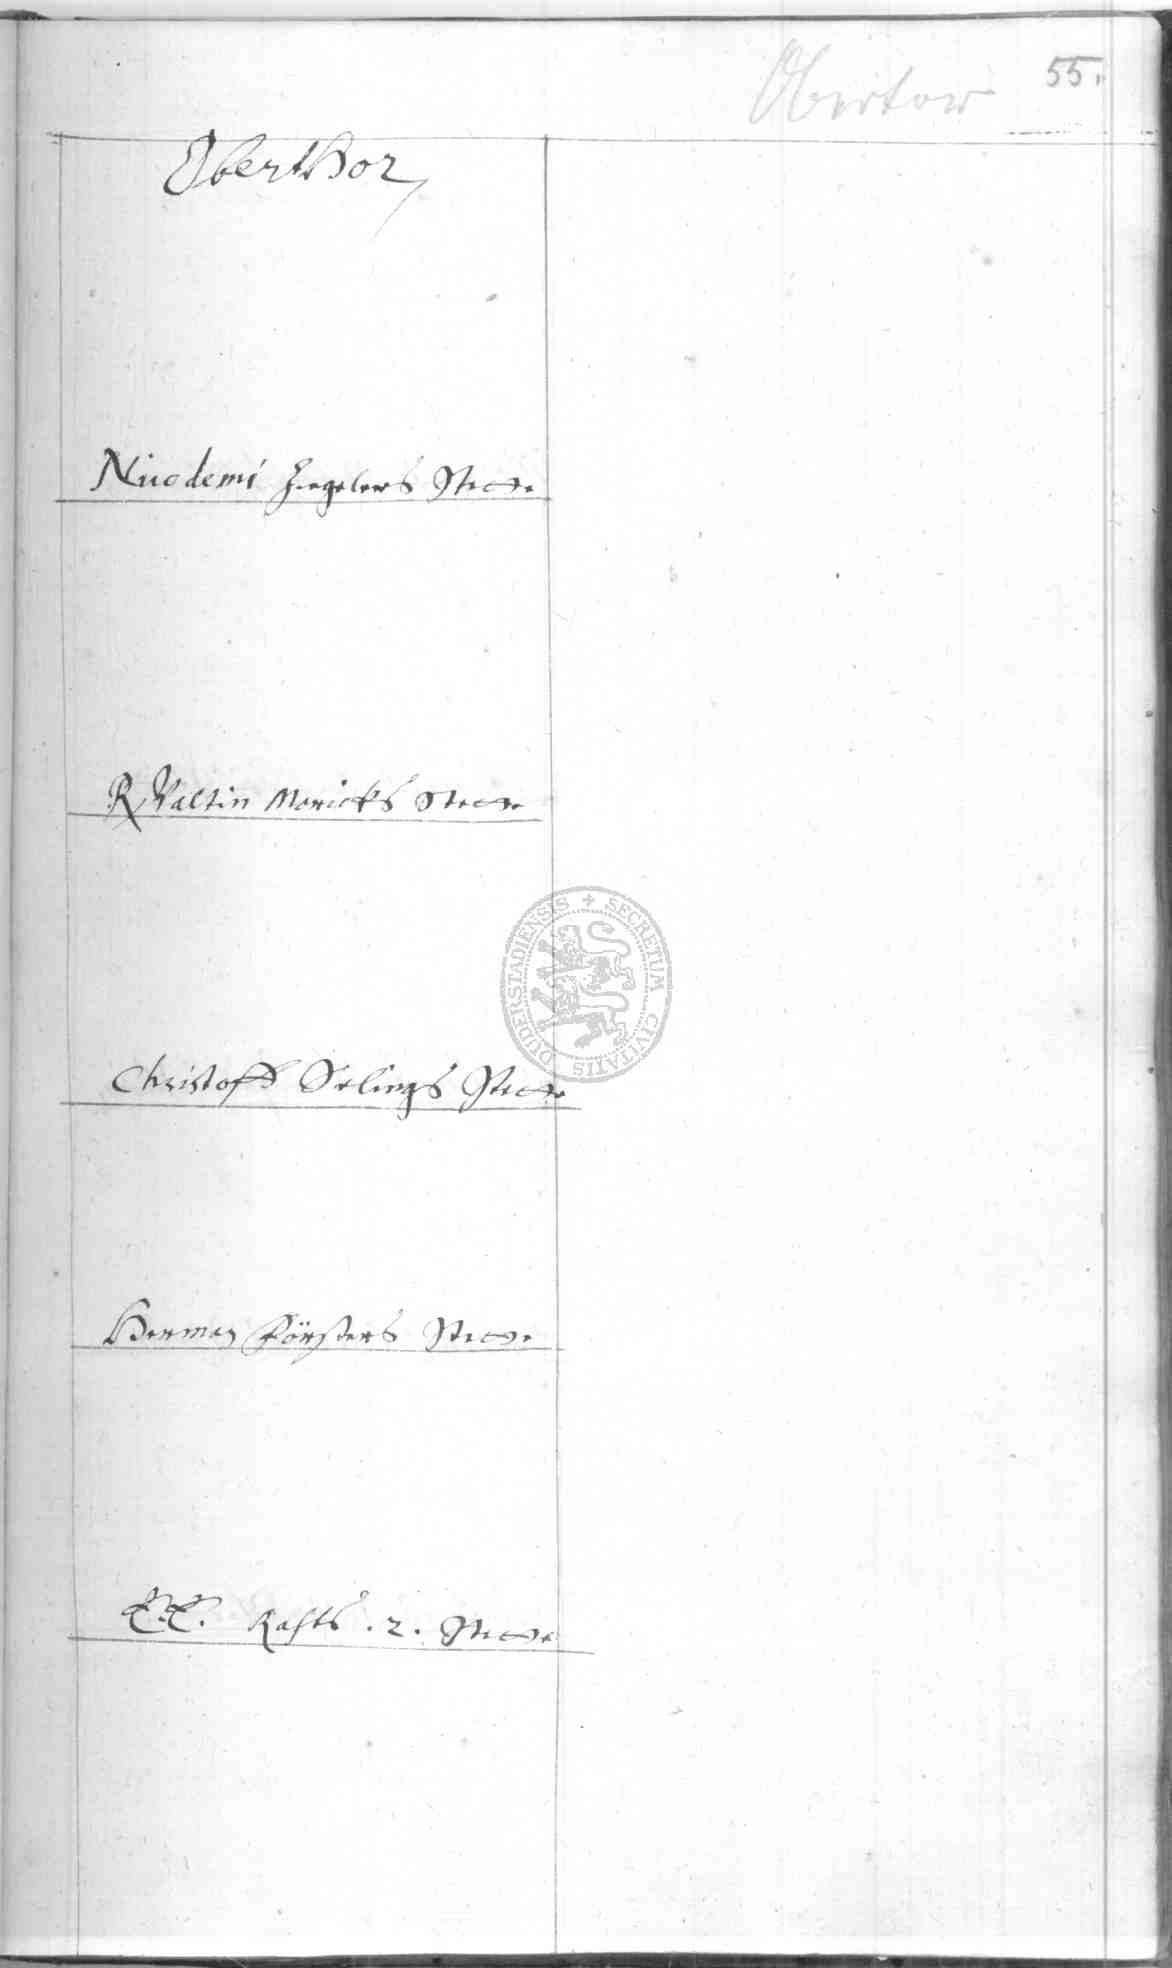 Obertor
55.
Oberthor
Nicodemi Zieglers Stette
R Valtin Moricks Stette
Christoff Selings Stette
Herman Försters Stette
E.E. Rahts .2. Stette
DUDERSTADIENSIS + SECRETUM CIVITATIS